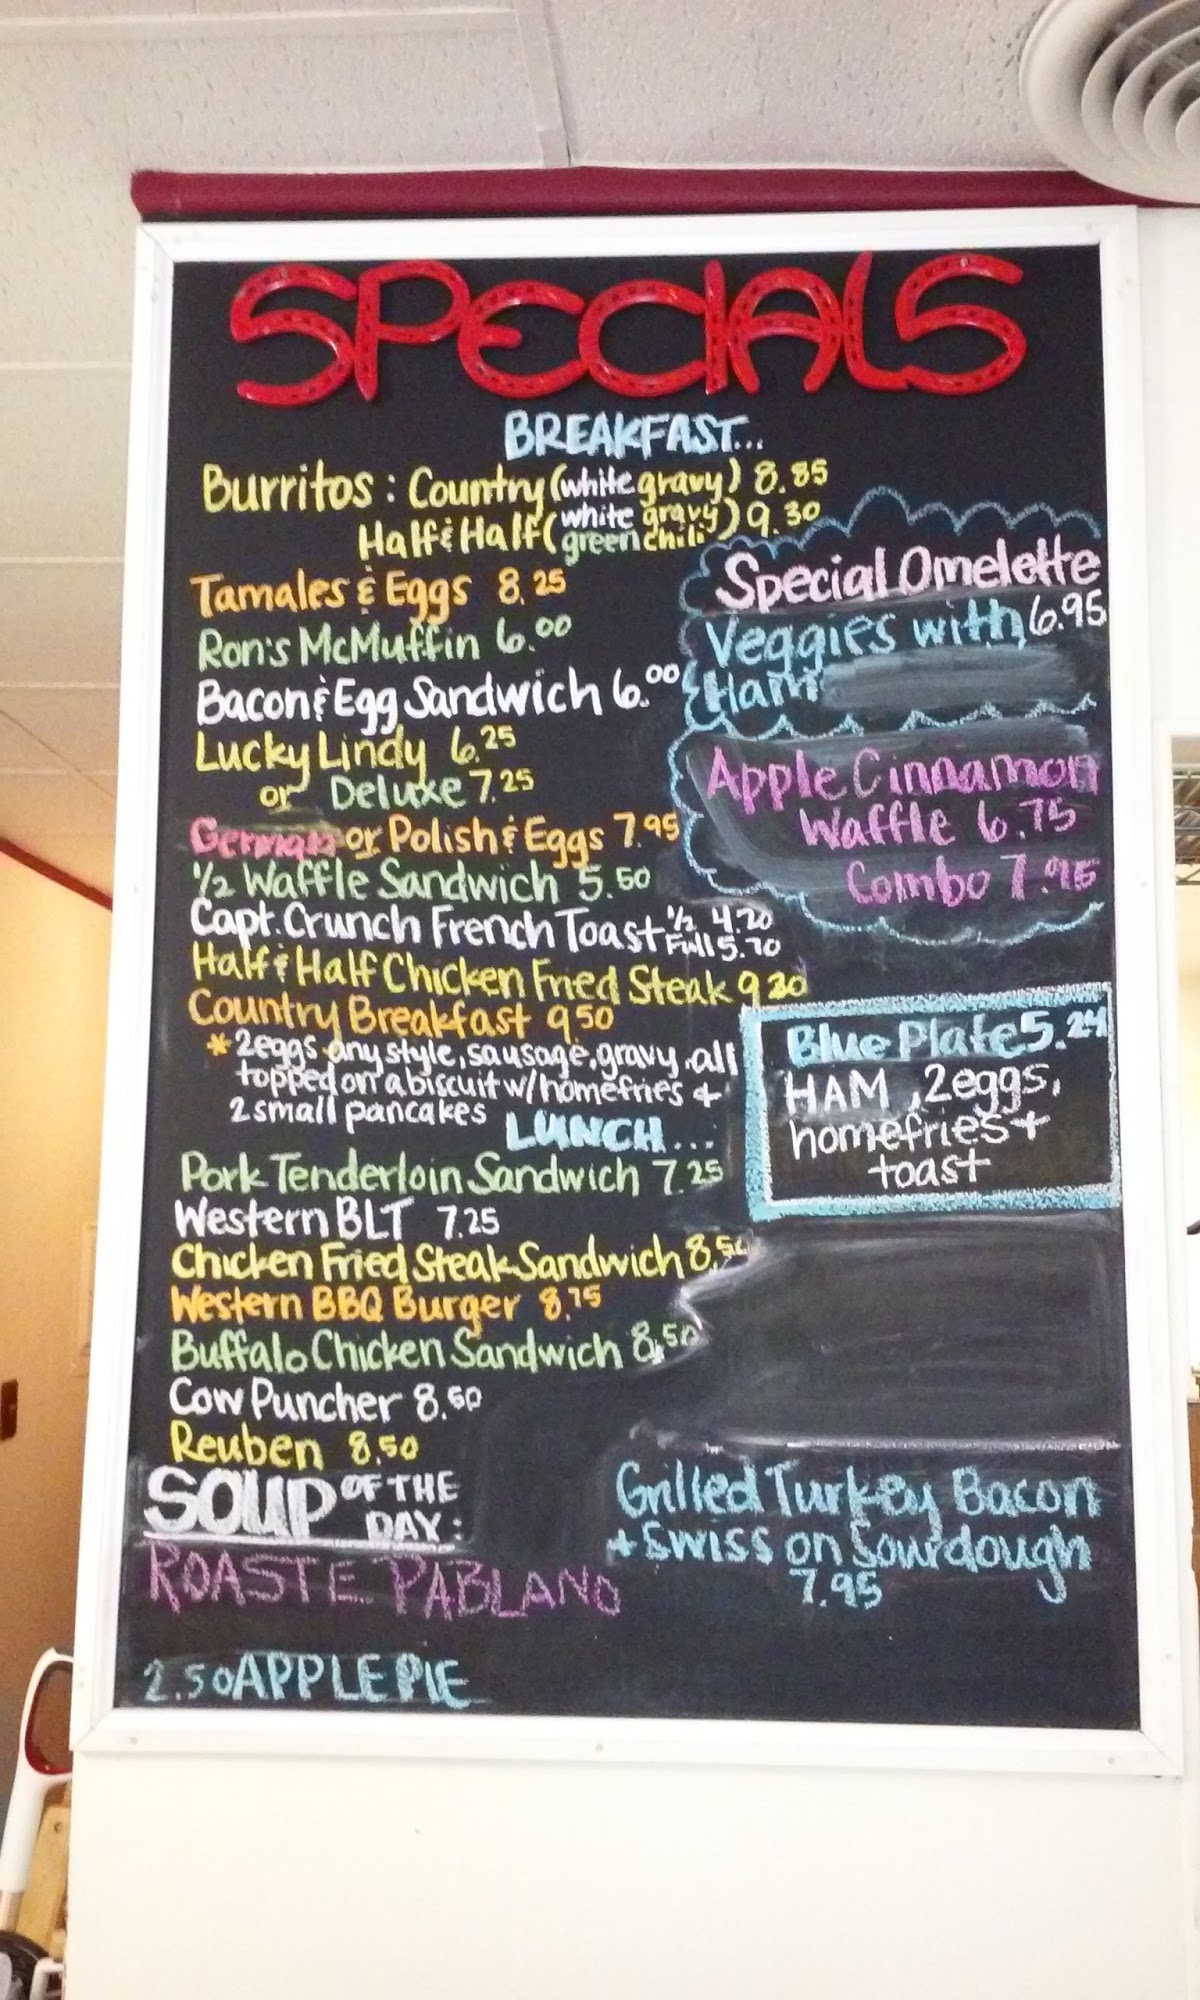 SPECIALS
BREAKFAST...
Burritos : Country (white gravy) 8.85
Half & Half (white gravy green chili) 9.30
Tamales & Eggs 8.25
Ron's McMuffin 6.00
Bacon & Egg Sandwich 6.00
Lucky Lindy 6.25
or Deluxe 7.25
German or Polish & Eggs 7.95
1/2 Waffle Sandwich 5.50
Capt. Crunch French Toast 1/2 4.20
Full 5.70
Half & Half Chicken Fried Steak 9.30
Country Breakfast 9.50
* 2eggs any style, sausage, gravy, all
topped on a biscuit w/ homefries +
2 small pancakes
Special Omelette
Veggies with 6.95
Ham
Apple Cinnamon
Waffle 6.75
Combo 7.95
Blue Plate 5.24
HAM, 2eggs,
homefries +
toast
LUNCH...
Pork Tenderloin Sandwich 7.25
Western BLT 7.25
Chicken Fried Steak Sandwich 8.50
Western BBQ Burger 8.75
Buffalo Chicken Sandwich 8.50
Cow Puncher 8.50
Reuben 8.50
SOUP OF THE
DAY:
ROASTE PABLANO
2.50 APPLE PIE
Grilled Turkey Bacon
+ Swiss on Sourdough
7.95